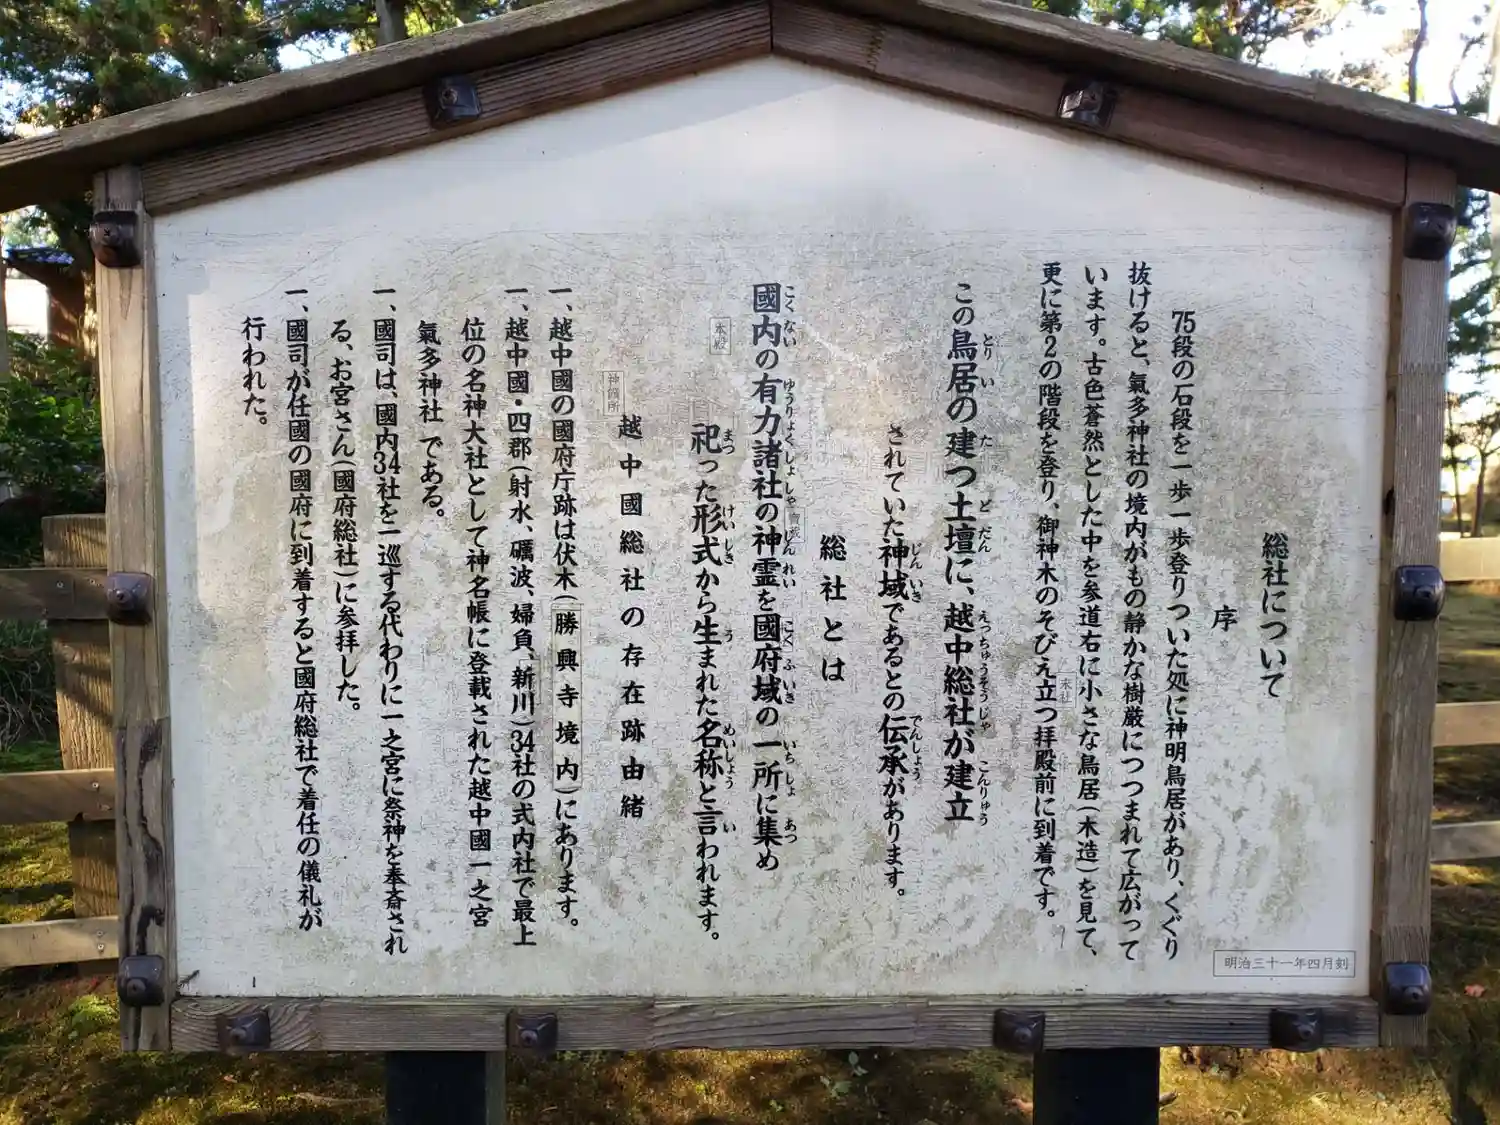 総社について
序
75段の石段を一歩一歩登りついた処に神明鳥居があり、くぐり
抜けると、氣多神社の境内がもの静かな樹厳につつまれて広がって
います。古色蒼然とした中を参道右に小さな鳥居(木造)を見て、
更に第2の階段を登り、御神木のそびえ立つ拝殿前に到着です。
この鳥居の建つ土壇に、越中総社が建立
とりいたどだんえっちゅうそうじゃこんりゅう
されていた神域であるとの伝承があります。
じんいきでんしょう
総社とは
國内の有力諸社の神霊を國府域の一所に集め
こくないゆうりょくしょしゃしんれいこくふいきいちしょあつ
祀った形式から生まれた名称と言われます。
まつけいしきうめいしょうい
越中國総社の存在跡由緒
一、越中國の國府庁跡は伏木(勝興寺境内)にあります。
一、越中國・四郡(射水、礪波、婦負、新川)34社の式内社で最上
位の名神大社として神名帳に登載された越中國一之宮
氣多神社 である。
一、國司は、國内34社を一巡する代わりに一之宮に祭神を奉斎され
る、お宮さん(國府総社)に参拝した。
一、國司が任國の國府に到着すると國府総社で着任の儀礼が
行われた。
明治三十一年四月刻
本殿